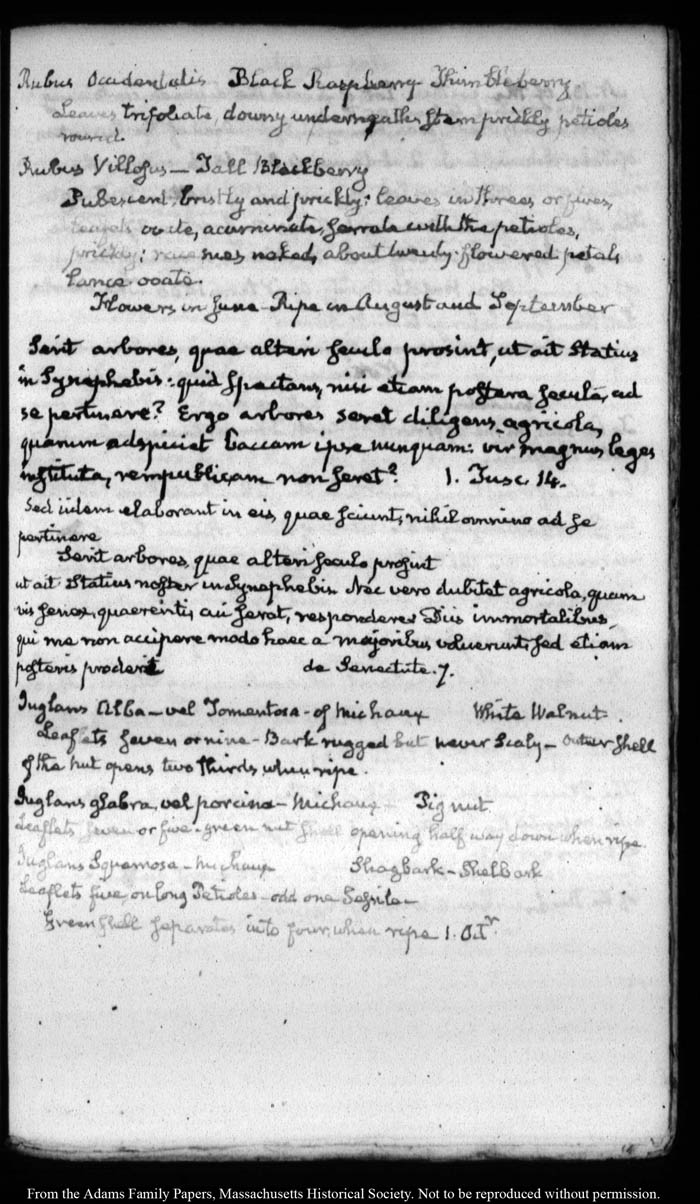 Rubus Occidentalis Black Raspberry Thimbleberry
Leaves trifoliate, downy underneath, stem prickly petioles
round.
Rubus Villosus — Tall Blackberry
Pubescent, bristly and prickly: leaves in threes or fives,
ovate, acuminate, serrate with the petioles,
prickly: racemes naked, about twenty-flowered petals
lance ovate.
Flowers in June – Ripe in August and September
Serit arbores, quae alteri seculo prosint, ut ait Statius
in Synephebis: quid spectans, nisi etiam postera secula, ad
se pertinere? Ergo arbores seret diligens agricola,
quarum adspiciet baccam ipse nunquam: vir magnus leges
instituta, rempublicam non seret? 1. Tusc. 14.
Sed iidem elaborant in eis, quae sciunt, nihil omnino ad se
pertinere
Serit arbores, quae alteri seculo prosint
ut ait Statius noster in Synephebis. Nec vero dubitet agricola, quam
vis senex, quaerenti, cui serat, respondere Diis immortalibus,
qui me non accipere modo haec a majoribus voluerunt, sed etiam
posteris proderit de Senectute. 7.
Juglans Alba – vel Tomentosa – of Michaux White Walnut.
Leaflets seven or nine – Bark rugged but never Scaly – Outer shell
of the nut opens two thirds, when ripe.
Juglans glabra, vel porcina – Michaux – Pignut
Leaflets seven or five – green nut shell opening half way down when ripe.
Juglans Squamosa – Michaux Shagbark – Shelbark
Leaflets five, on long Petioles – odd one Sessile –
Green shell separates into four, when ripe 1. Octr.
From the Adams Family Papers, Massachusetts Historical Society. Not to be reproduced without permission.